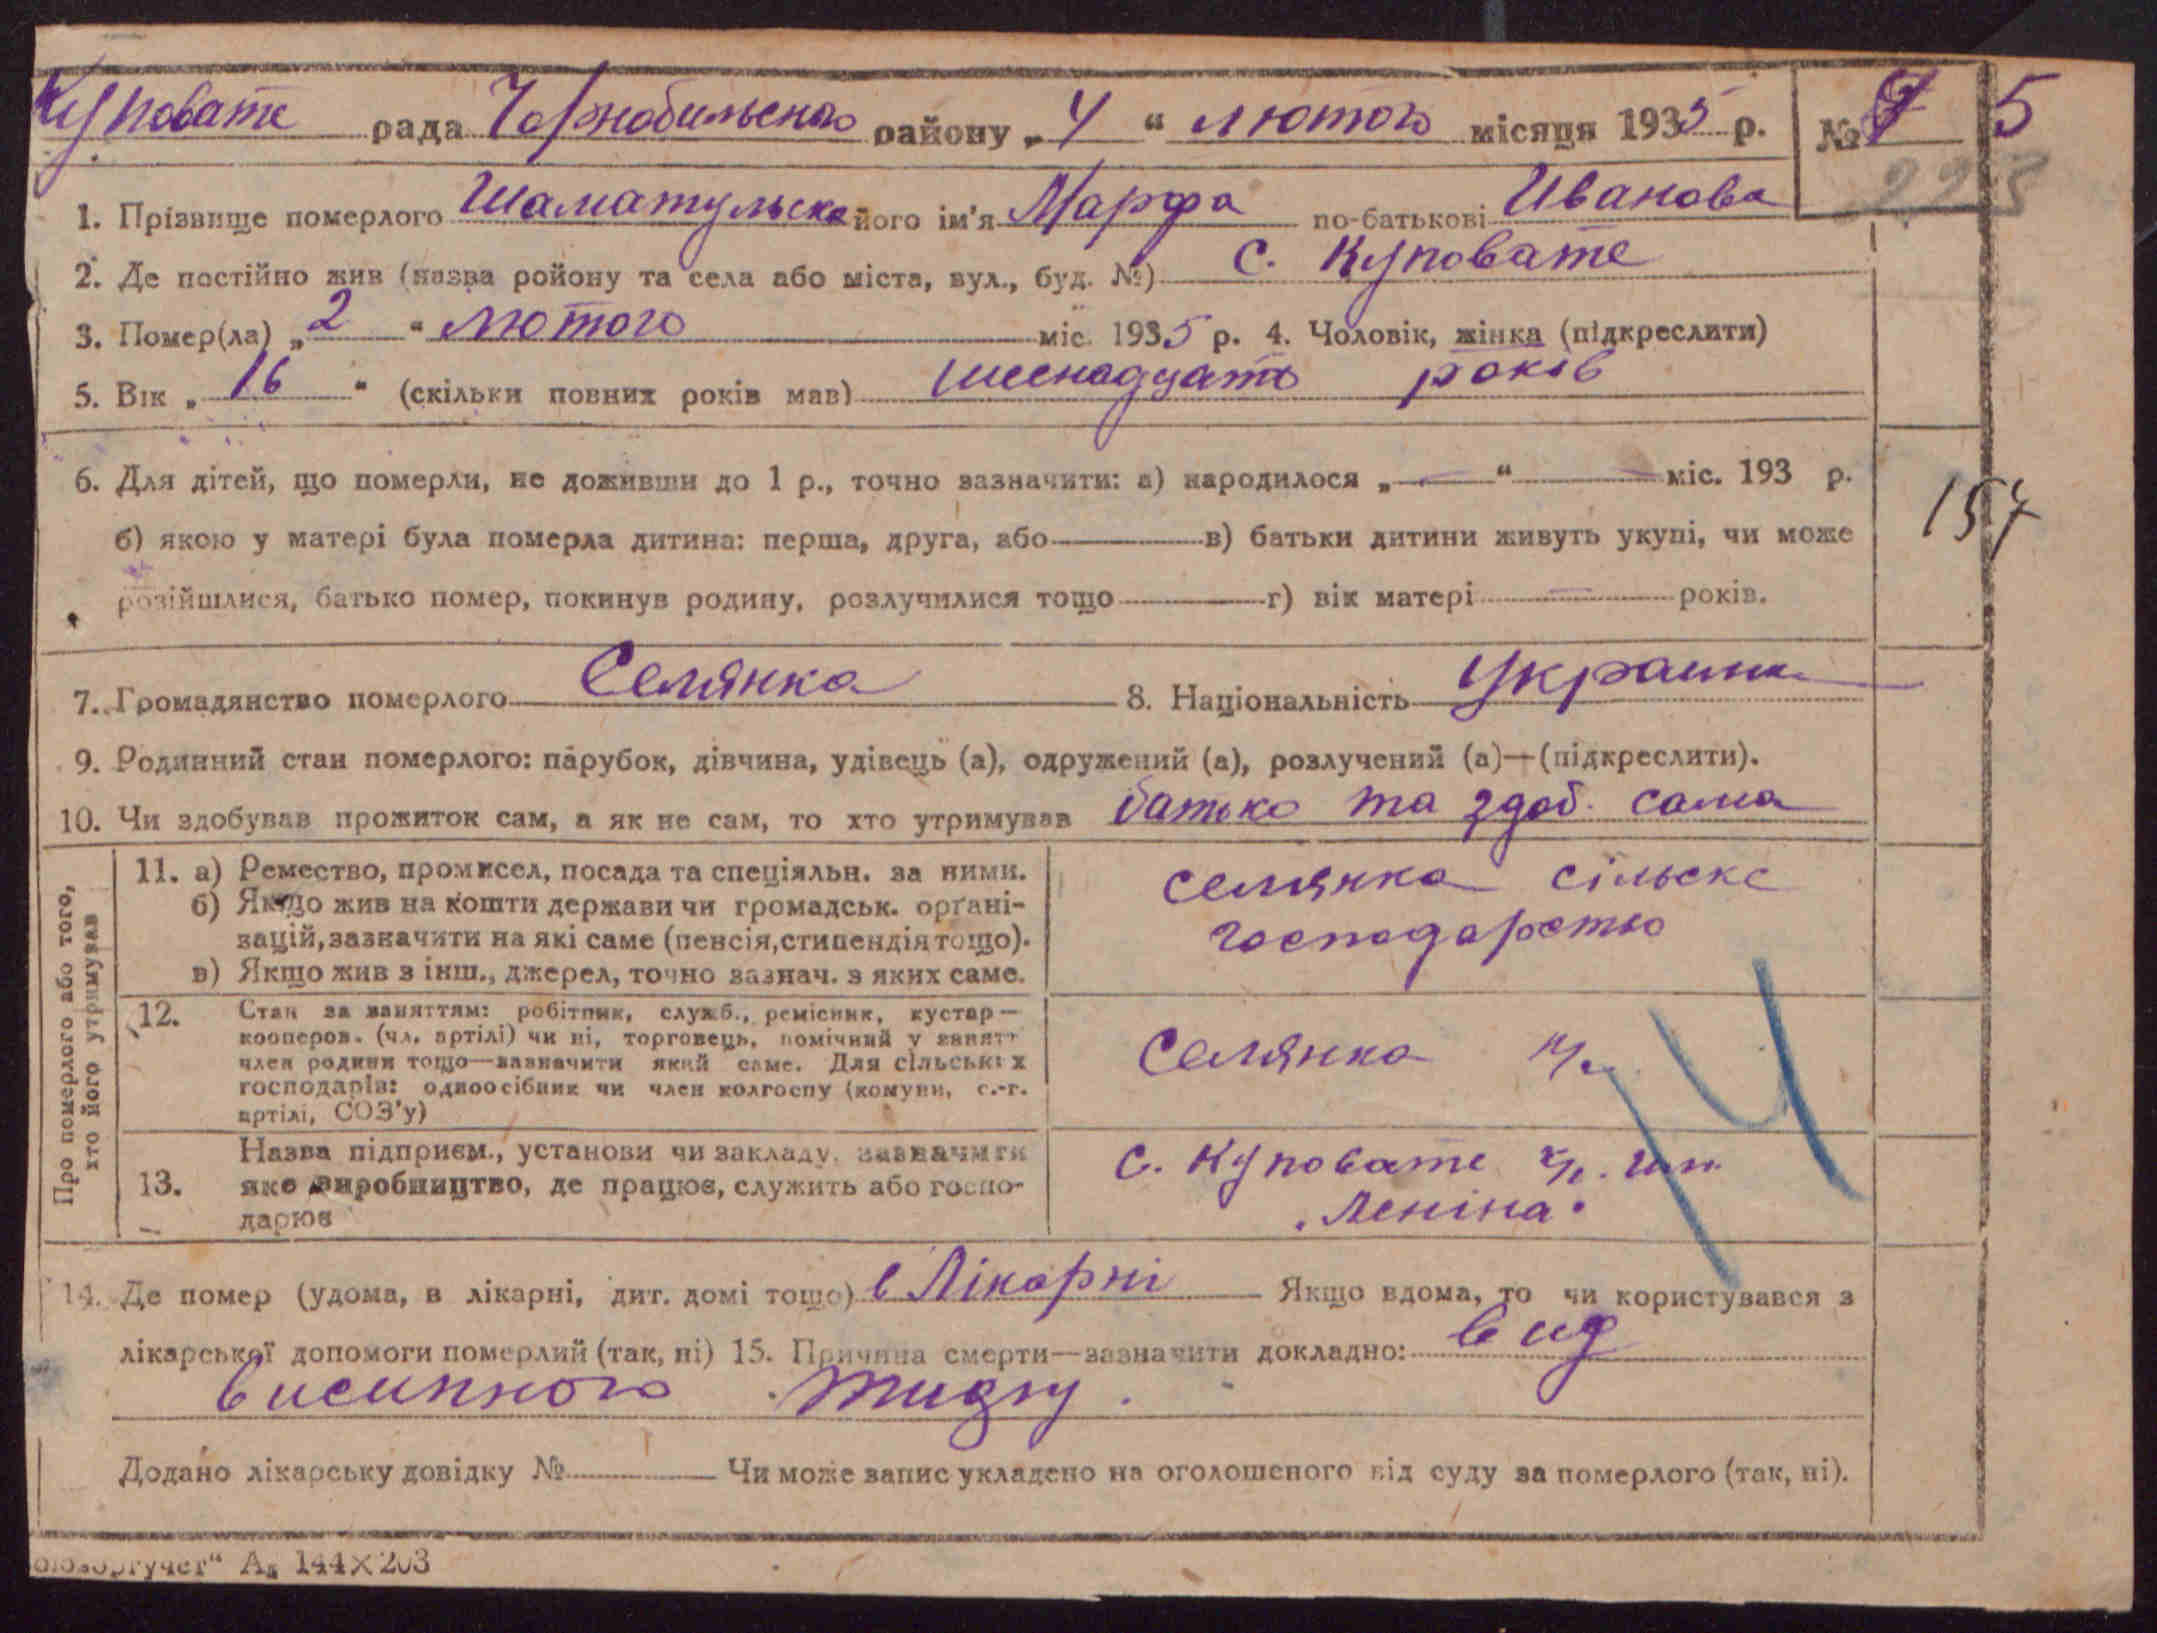 Куповате рада Чорнобильского району „4“ лютого місяця 1935 р. № 5
223
1. Прізвище померлого Шаматульска його ім'я Марфа по-батькові Иванова
2. Де постійно жив (назва ройону та села або міста, вул., буд. №) С. Куповате
3. Помер(ла) „2“ лютого міс. 1935 р. 4. Чоловік, жінка (підкреслити)
5. Вік „16“ (скільки повних років мав) шеснадцать років
6. Для дітей, що померли, не доживши до 1 р., точно зазначити: а) народилося „—“ — міс. 193 р.
157
б) якою у матері була померла дитина: перша, друга, або — в) батьки дитини живуть укупі, чи може
розійшлися, батько помер, покинув родину, розлучилися тощо — г) вік матері — років.
7. Громадянство померлого Селянка 8. Національність Украинка
9. Родинний стан померлого: парубок, дівчина, удівець (а), одружений (а), розлучений (а)—(підкреслити).
10. Чи здобував прожиток сам, а як не сам, то хто утримував батько та здоб. сама
Про померлого або того,
хто його утримував
11. а) Ремество, промисел, посада та спеціяльн. за ними.
б) Якщо жив на кошти держави чи громадськ. орґані-
зацій, зазначити на які саме (пенсія, стипендія тощо).
в) Якщо жив з інш., джерел, точно зазнач. з яких саме.
селянка сільске
господарство
12. Стан за заняттям: робітник, служб., ремісник, кустар—
кооперов. (чл. артілі) чи ні, торговець, помічний у занятт
член родини тощо—зазначити який саме. Для сільських
господарів: одноосібник чи член колгоспу (комуни, с.-г.
артілі, СОЗ'у)
Селянка
14
13. Назва підприєм., установи чи закладу, зазначити
яке виробництво, де працює, служить або госпо-
дарює
С. Куповате к/г. им.
Леніна.
14. Де помер (удома, в лікарні, дит. домі тощо) в Лікарні Якщо вдома, то чи користувався з
лікарської допомоги померлий (так, ні) 15. Причина смерти—зазначити докладно: вид
висипного тифу.
Додано лікарську довідку № Чи може запис укладено на оголошеного від суду за померлого (так, ні).
А₅ 144×203